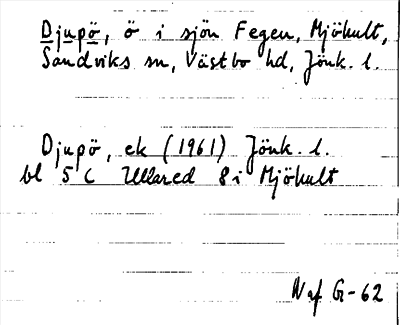 Djupö, ö i sjön Fegen, Mjöhult,
Sandviks sn, Västbo hd, Jönk. l.
Djupö, ek (1961) Jönk. l.
bl 5 C Ullared 8i Mjöhult
Waf G-62